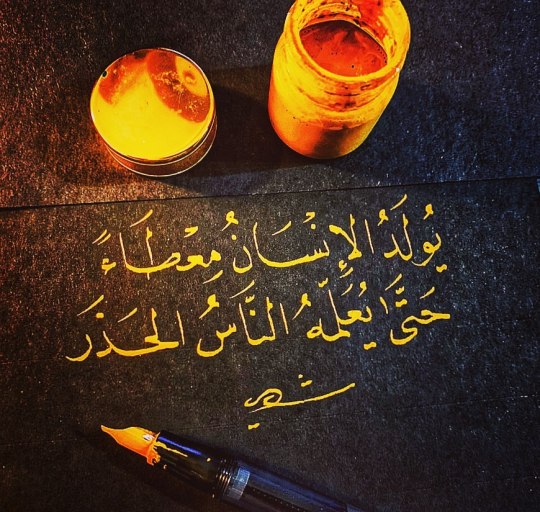 يُولَدُ الإِنْسَانُ مِعْطَاءً
حَتَّى يُعَلِّمَهُ النَّاسُ الحَذَرَ